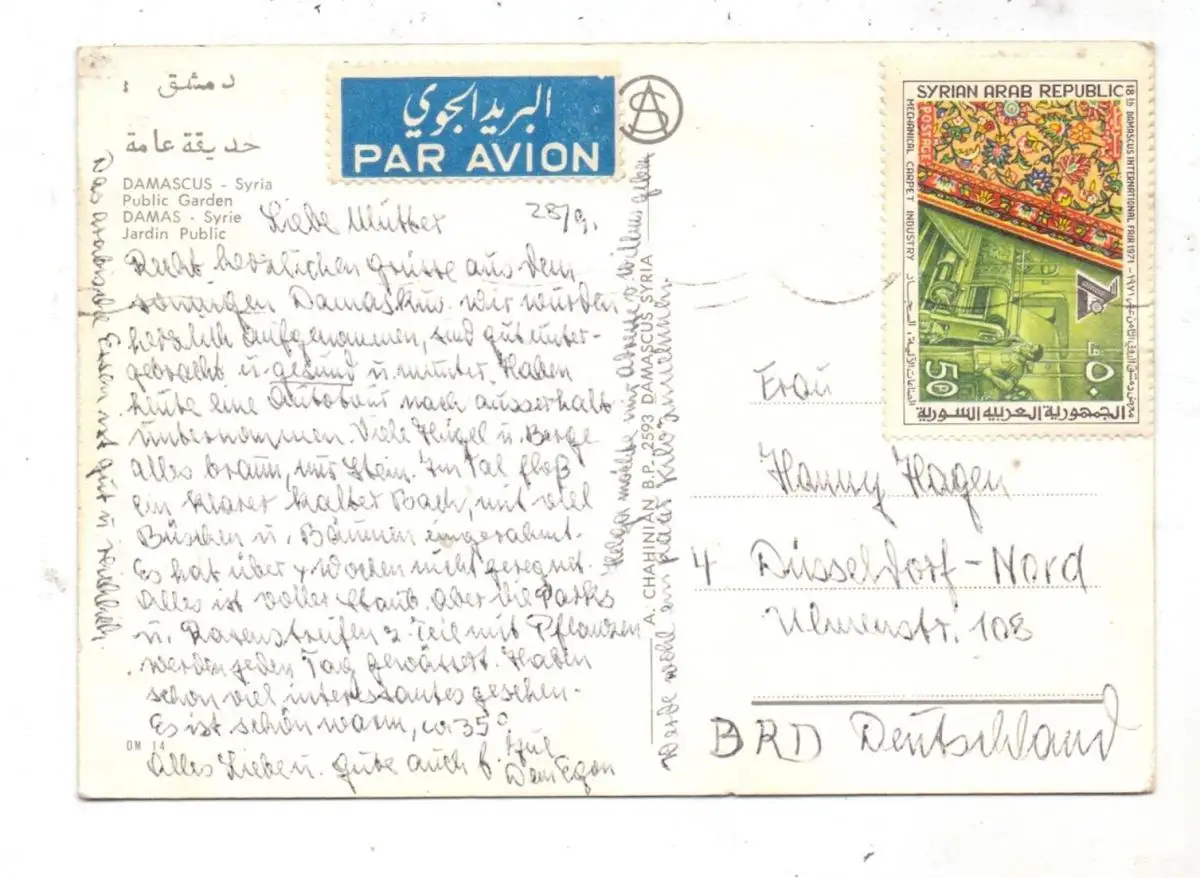 دمشق :
حديقة عامة
DAMASCUS - Syria
Public Garden
DAMAS - Syrie
Jardin Public
البريد الجوي
PAR AVION
28/9.
Liebe Mutter
Recht herzlichen Grüsse aus dem
sonnigen Damaskus. Wir wurden
herzlich aufgenommen, sind gut unter-
gebracht u. gesund u. munter. Haben
heute eine Autotour nach ausserhalb
unternommen. Viele Hügel u. Berge
alles braun, nur Stein. Im Tal floß
ein klarer kalter Bach, mit viel
Büschen u. Bäumen eingerahmt.
Es hat über 4 Wochen nicht geregnet.
Alles ist voller Staub. aber die Parks
u. Rasenstreifen z. Teil mit Pflanzen
werden jeden Tag gewässert. Haben
schon viel interessantes gesehen.
Es ist schön warm, ca 35°
Alles Liebe u. gute auch f.
Dein Egon
Das arabische Essen ist gut u. reichlich
Helga möchte mir abends willens geben
Werde wohl ein paar Kilo zunehmen
DM 14
A. CHAHINIAN B.P. 2593 DAMASCUS SYRIA
SYRIAN ARAB REPUBLIC
18th DAMASCUS INTERNATIONAL FAIR 1971 - ١٩٧١
MECHANICAL CARPET INDUSTRY
POSTAGE
50P
٥٠ ق
الجمهورية العربية السورية
Frau
Hanny Hagen
4 Düsseldorf-Nord
Ulmenstr. 108
BRD Deutschland